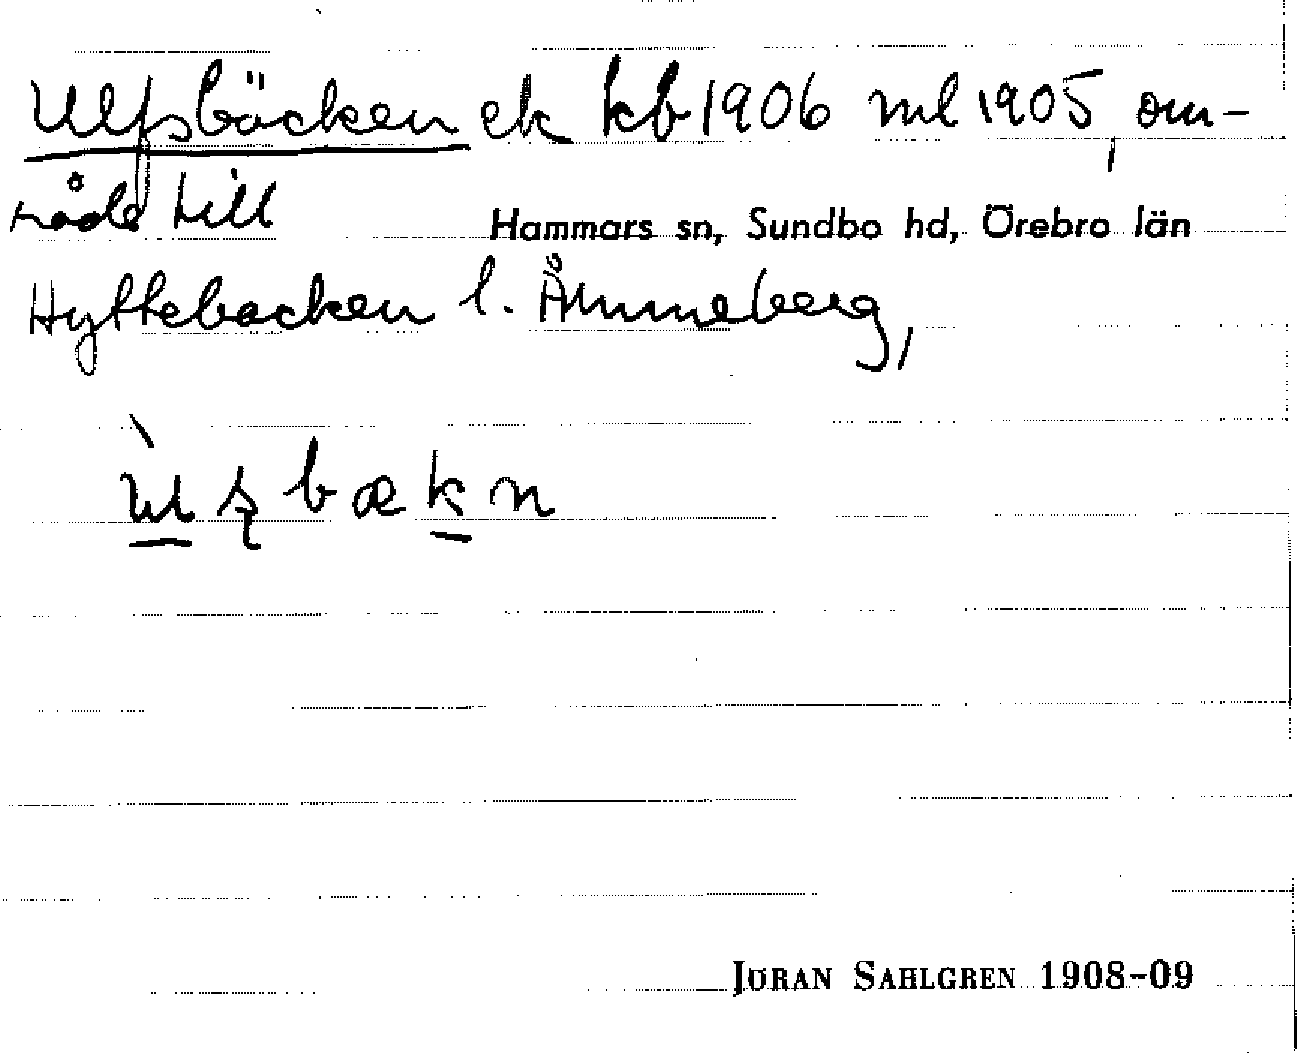 Ulfsbäcken ek kb 1906 ml 1905, om-
råde till
Hammars sn, Sundbo hd, Örebro län
Hyttebacken l. Åmmeberg,
JÖRAN SAHLGREN 1908-09